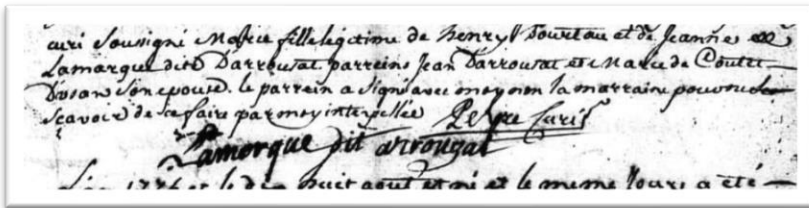 curé soussigné Marie fille legitime de henry Pourtau et de Jeanne de
Lamarque dite Darrousat parreins Jean Darrousat et Marie de Coutet
Dosan son epouse. le parrein a signé avec moy non la marraine pour ne
scavoir de ce faire par moy interpellée
Curé
Lamorque dit arrougat
et le dix huit aout est né et le meme Jour a été